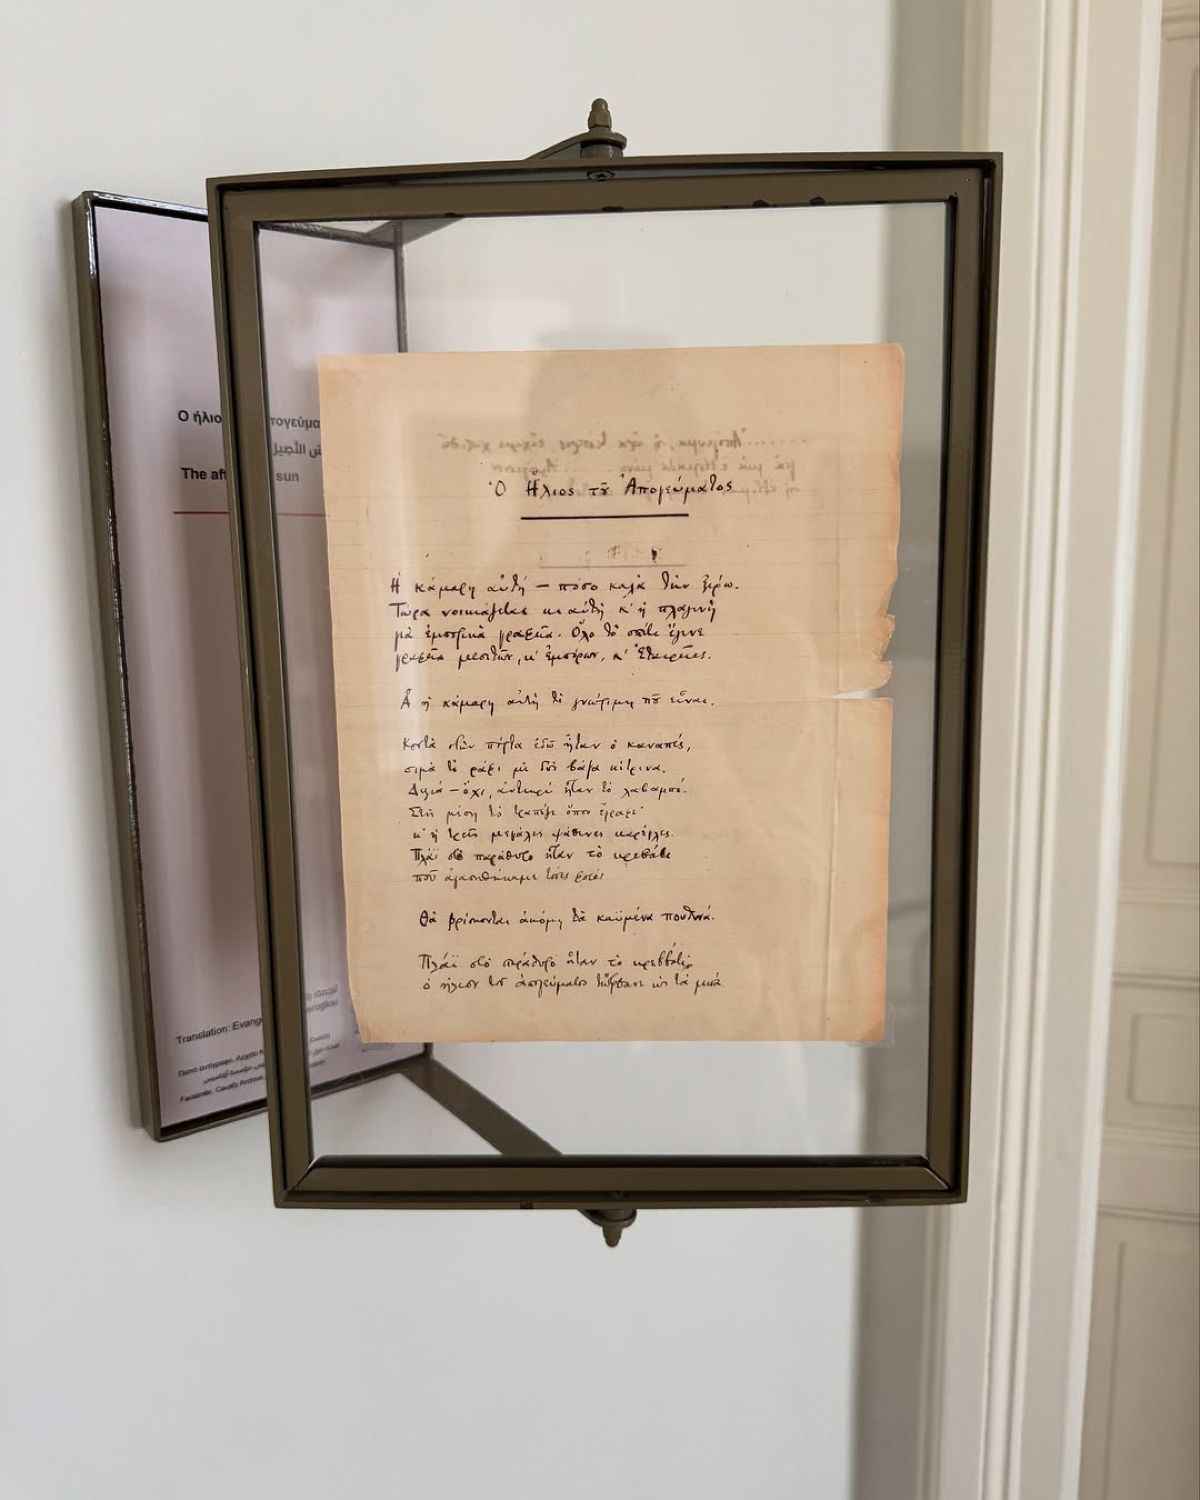 Ὁ Ἥλιος τοῦ Ἀπογεύματος
Ἡ κάμαρη αὐτή — πόσο καλὰ τὴν ξέρω.
Τώρα νοικιάζεται κι αὐτὴ κ' ἡ πλαγινὴ
γιὰ ἐμπορικὰ γραφεῖα. Ὅλο τὸ σπίτι ἔγινε
γραφεῖα μεσιτῶν, κ' ἐμπόρων, κ' Ἑταιρεῖες.
Ἆ ἡ κάμαρη αὐτὴ τί γνώριμη ποῦ εἶναι.
Κοντὰ στὴν πόρτα ἐδῶ ἦταν ὁ καναπές,
σιμὰ τὸ ράφι μὲ δυὸ βάζα κίτρινα.
Δεξιά — ὄχι, ἀντικρύ ἦταν τὸ λαβαμπό.
Στὴ μέση τὸ τραπέζι ὅπου ἔγραφε·
κ' ἡ τρεῖς μεγάλες ψάθινες καρέγλες.
Πλάϊ στὸ παράθυρο ἦταν τὸ κρεββάτι
ποῦ ἀγαπηθήκαμε τόσες φορές.
Θὰ βρίσκονται ἀκόμη τὰ καϋμένα πουθενά.
Πλάϊ στὸ παράθυρο ἦταν τὸ κρεββάτι·
ὁ ἥλιος τοῦ ἀπογεύματος τὤφθανε ὡς τὰ μισά.
Ο ήλιο
The af sun
Translation: Evang
Facsimile: Cavafy Archive,